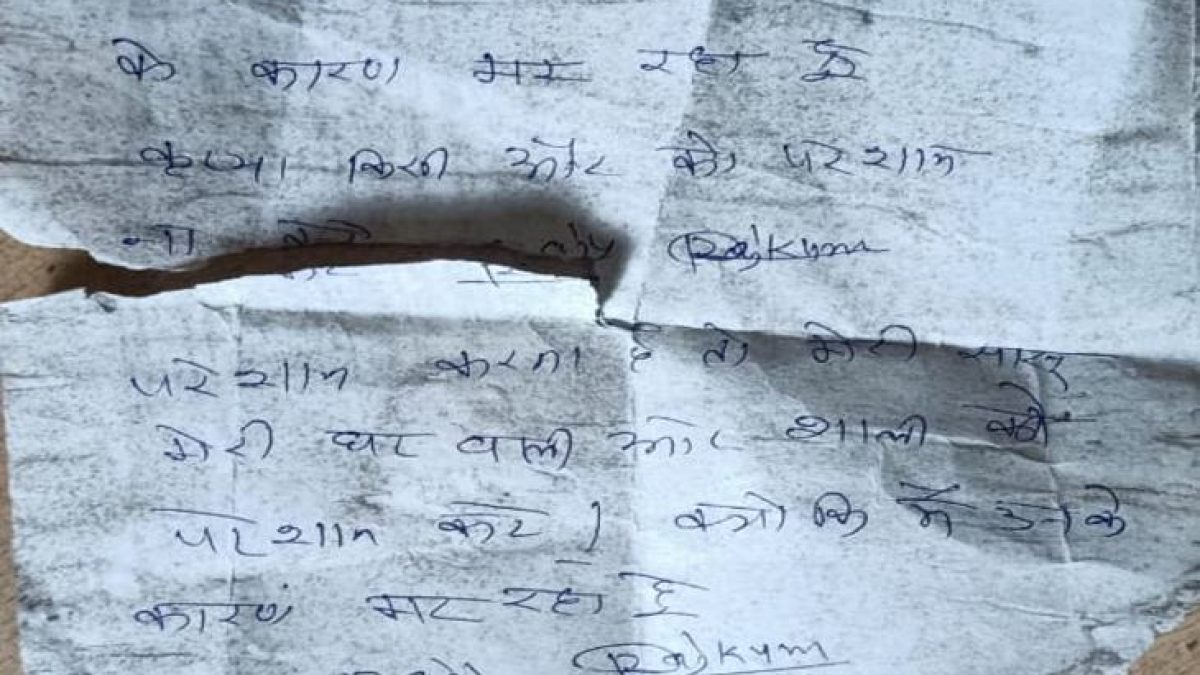 के कारण मर रहा हूँ
कृप्या किसी और को परेशान
ना करे Rajkum
परेशान करना है तो मेरी सास
मेरी घर वाली और शाली को
परेशान करे। क्यो कि मैं उनके
कारण मर रहा हूँ
Rajkum